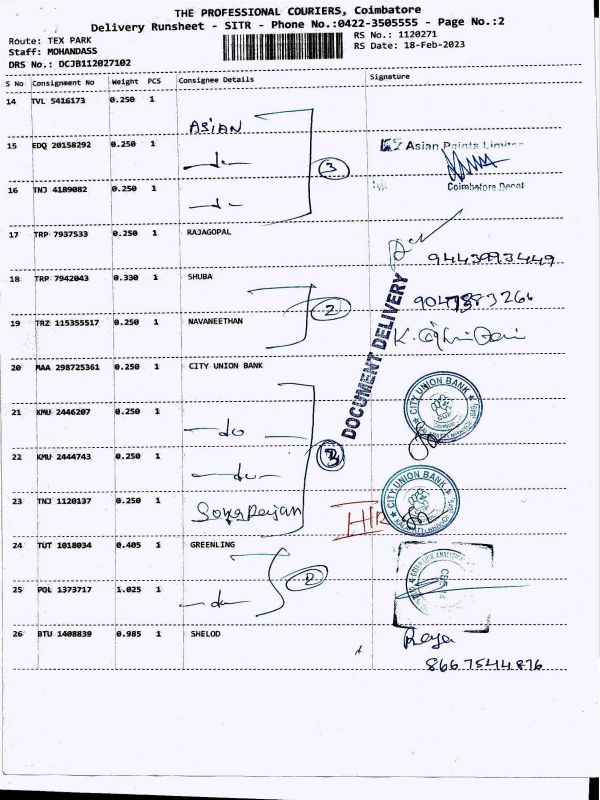 THE PROFESSIONAL COURIERS, Coimbatore
Delivery Runsheet - SITR - Phone No.:0422-3505555 - Page No.:2
Route: TEX PARK RS No.: 1120271
Staff: MOHANDASS RS Date: 18-Feb-2023
DRS No.: DCJB112027102
S No Consignment No Weight PCS Consignee Details Signature
14 TVL 5416173 0.250 1
ASIAN
15 EDQ 20158292 0.250 1 Asian Paints Limited
3
16 TNJ 4189082 0.250 1 Coimbatore Depot
17 TRP 7937533 0.250 1 RAJAGOPAL
9443993449
18 TRP 7942043 0.330 1 SHUBA
2
19 TRZ 115355517 0.250 1 NAVANEETHAN
DOCUMENT DELIVERY
20 MAA 298725361 0.250 1 CITY UNION BANK
CITY UNION BANK
21 KMU 2446207 0.250 1
do
22 KMU 2444743 0.250 1
do
CITY UNION BANK
23 TNJ 1120137 0.250 1
24 TUT 1018034 0.405 1 GREENLING
2
25 POL 1373717 1.025 1
do
26 BTU 1408839 0.985 1 SHELOD
Reya
8667544876